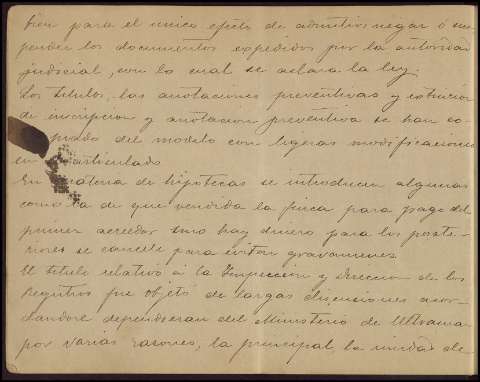 bien para el unico efecto de admitir, negar ó sus
pender los documentos expedidos por la autoridad
judicial, con lo cual se aclara la ley.
Los titulos, las anotaciones preventivas y
de inscripcion y anotacion preventiva se han co
piado del modelo con ligeras modificaciones
en articulado
En materia de hipotecas se introducen algunas
como la de que vendida la finca para pago del
primer acreedor sino hay dinero para los poste-
riores se cancele para evitar gravamenes.
El titulo relativo á la Inspeccion y Direccion de los
Registros fue objeto de largas discusiones acor-
dandose dependieran del Ministerio de Ultramar
por varias razones, la principal, la unidad de